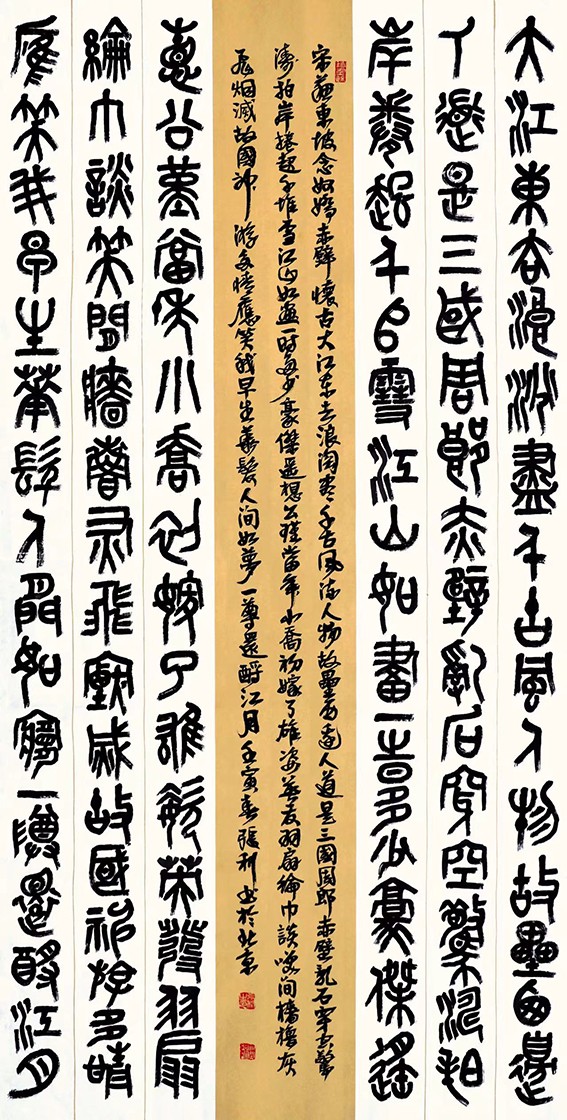 大江東去浪淘盡千古風人物故壘西邊
人道是三國周郎赤壁亂石穿空驚濤拍
岸卷起千堆雪江山如畫一時多少豪傑遙
宋蘇東坡念奴嬌赤壁懷古大江东去浪淘盡千古風流人物故壘西邊人道是三國周郎赤壁亂石穿空驚
濤拍岸捲起千堆雪江山如畫一時多少豪傑遙想公瑾當年小喬初嫁了雄姿英发羽扇綸巾談笑间檣櫓灰
飛烟滅故國神游多情應笑我早生華髮人间如夢一尊還酹江月壬寅春張利书於北京
想公瑾當年小喬初嫁了雄姿英發羽扇
綸巾談笑間檣櫓灰飛煙滅故國神游多情
應笑我早生華髮人間如夢一樽還酹江月